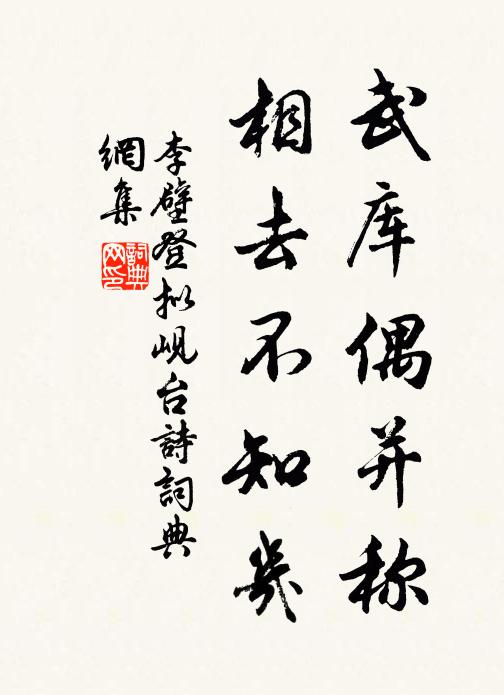 武库偶并称
相去不知几
李壁登拟岘台詩詞典
網集
詞典
网印